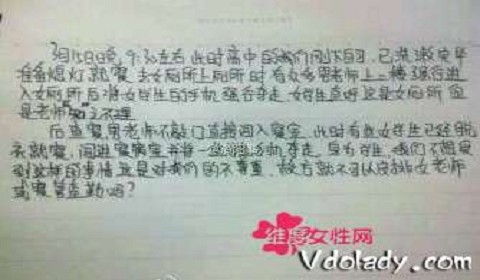 3月15日晚,9:30左右此时高中的我们刚下自习,已洗漱完毕
准备熄灯就寝.去女厕所上厕所时有女 男老师上二楼强行进
入女厕所后将女学生的手机强行夺走.女学生直呼这是女厕所但
是老师 之不理
后查寝男老师不敲门直接闯入寝室,此时有些女学生已经脱
衣就寝,闯进寝室里并将一 手机夺走.身为学生,我们不愿受
到这样的事情这是对我们的不尊重,校方就不可以安排女老师
或寝管查勤吗?
维度女性网
Vdolady.com